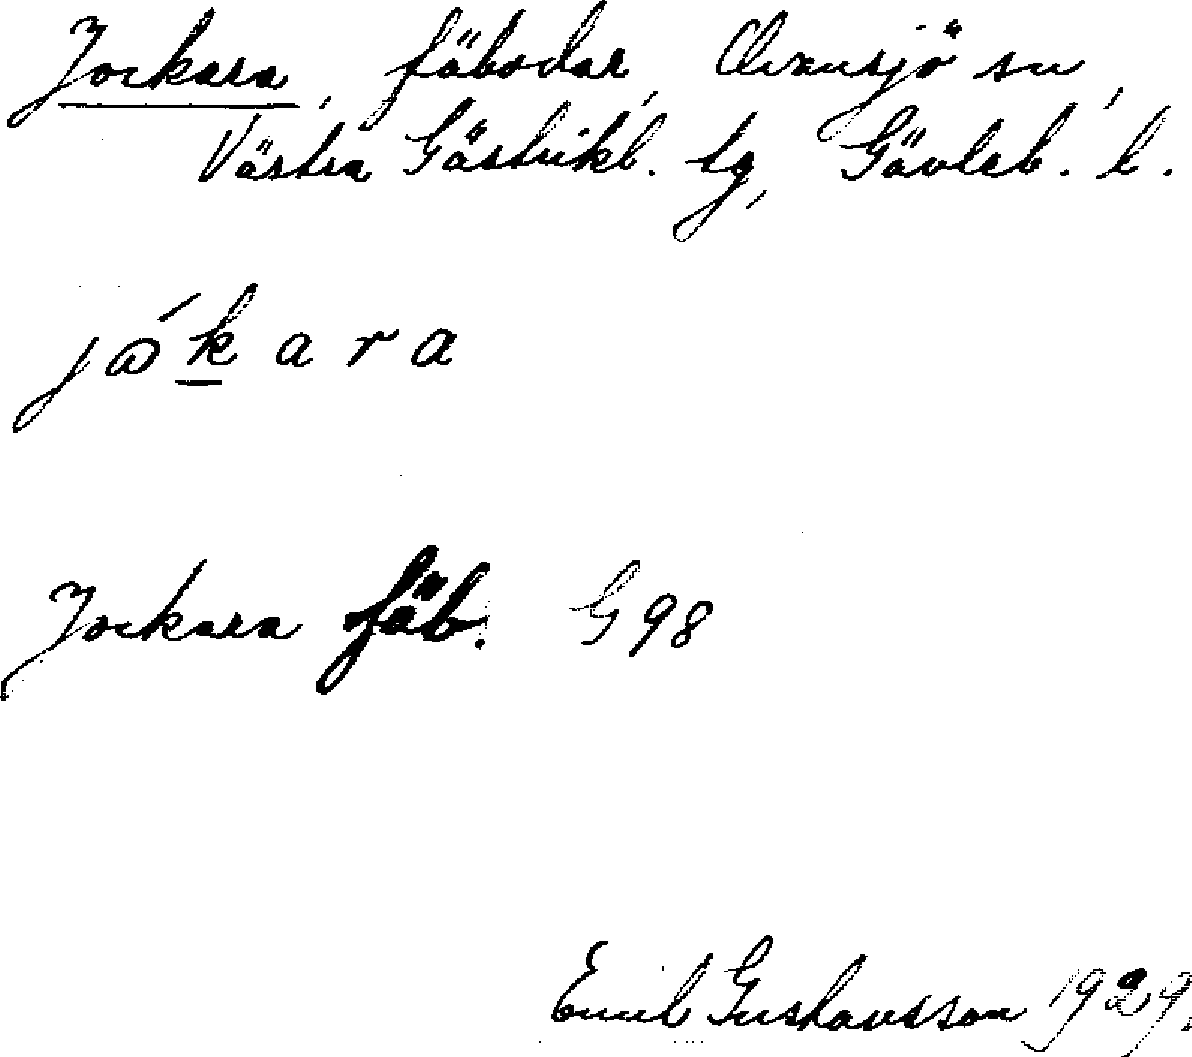 Jockara, fäbodar, Ovansjö sn,
Västra Gästrikl. tg, Gävleb. l.
jåkara
Jockara fäb. G 98
Emil Gustavsson 1929.